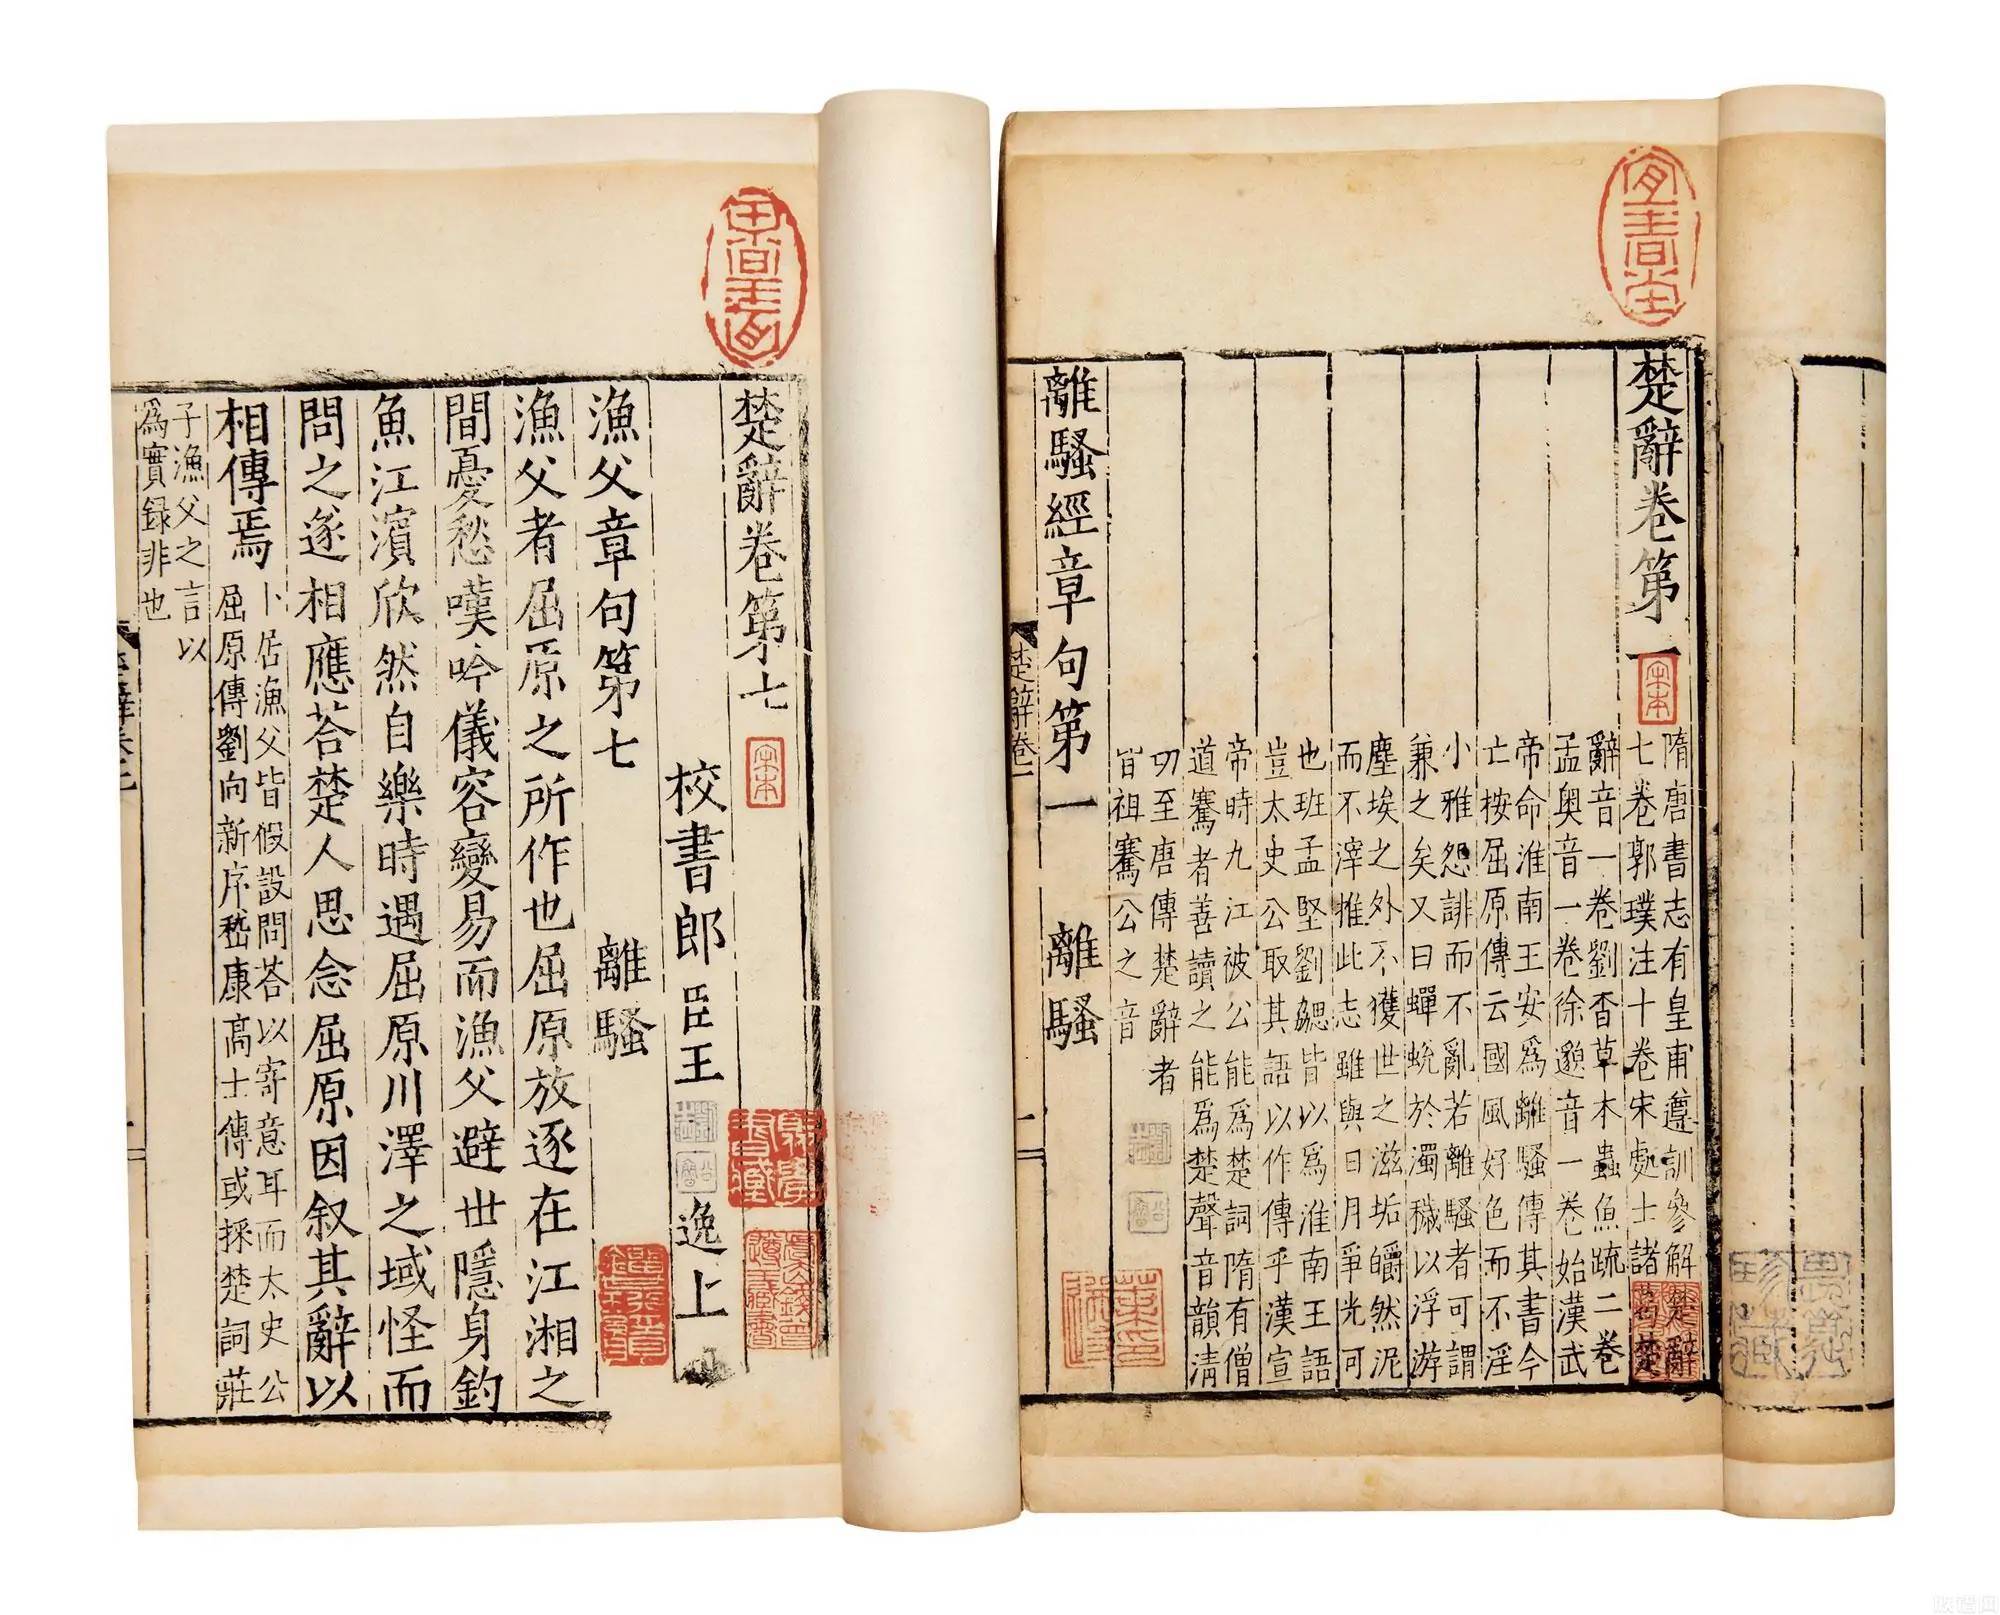 楚辭卷第一
宋本
隋唐書志有皇甫遵訓參解楚辭
七卷郭璞注十卷宋處士諸葛楚
辭音一卷劉杳草木蟲魚疏二卷
孟奧音一卷徐邈音一卷始漢武
帝命淮南王安爲離騷傳其書今
亡按屈原傳云國風好色而不淫
小雅怨誹而不亂若離騷者可謂
兼之矣又曰蟬蛻於濁穢以浮游
塵埃之外不獲世之滋垢皭然泥
而不滓推此志雖與日月爭光可
也班孟堅劉勰皆以爲淮南王語
豈太史公取其語以作傳乎漢宣
帝時九江被公能爲楚詞隋有僧
道騫者善讀之能爲楚聲音韻清
切至唐傳楚辭者
皆祖騫公之音
離騷經章句第一 離騷
楚辭卷一
楚辭卷第七
宋本
校書郎臣王逸上
漁父章句第七 離騷
漁父者屈原之所作也屈原放逐在江湘之
間憂愁嘆吟儀容變易而漁父避世隱身釣
魚江濱欣然自樂時遇屈原川澤之域怪而
問之遂相應荅楚人思念屈原因叙其辭以
相傳焉
卜居漁父皆假設問荅以寄意耳而太史公
屈原傳劉向新序嵇康高士傳或採楚詞莊
子漁父之言以
為實録非也